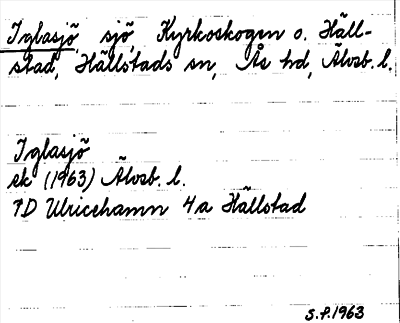 Iglasjö, sjö, Kyrkoskogen o. Häll-
stad, Hällstads sn, Ås hd, Älvsb. l.
Iglasjö
ek (1963) Älvsb. l.
TD Ulricehamn 4a Hällstad
S.P. 1963